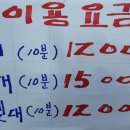 이용요금
(10분) 1200
대 (10분) 1500
대 (10분) 1200